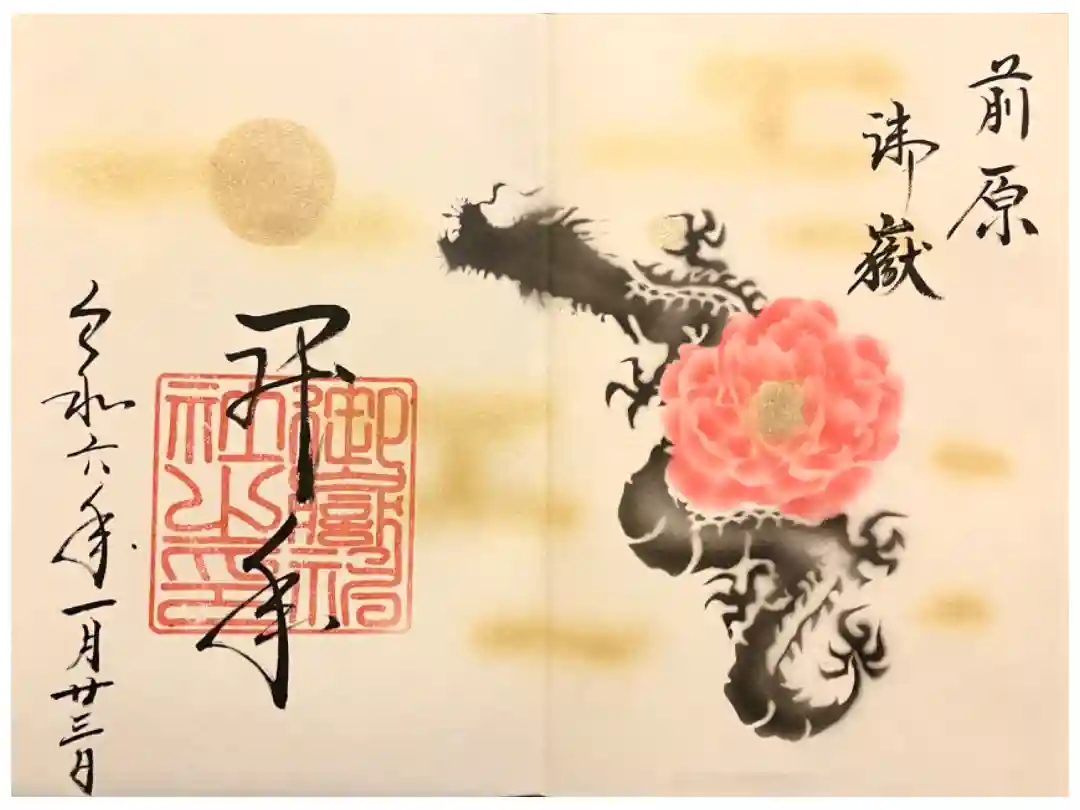 前原
御嶽
年
御嶽神
社之印
令和六年一月廿三日